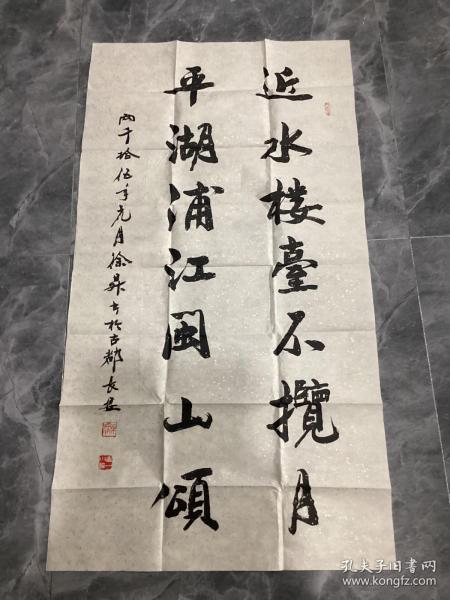 近水楼臺不攬月
平湖浦江闽山頌
両千拾伍年元月徐昇书於古都长安
孔夫子旧书网
www.kongfz.com